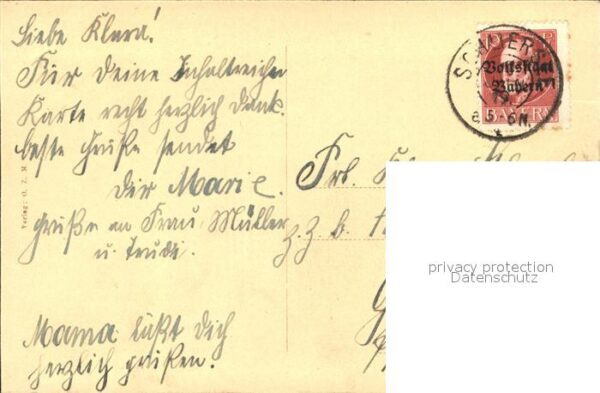 Liebe Klara!
Für Deine Inhaltreiche
Karte recht herzlich Dank.
beste Grüße sendet
Dir Marie.
Grüße an Frau Müller
u. Trudi.
Mama läßt Dich
herzlich grüßen.
Verlag: O. Z. M.
Volksstaat
Bayern
BAYERN
5-6N.
Frl.
z. Z. b.
privacy protection
Datenschutz